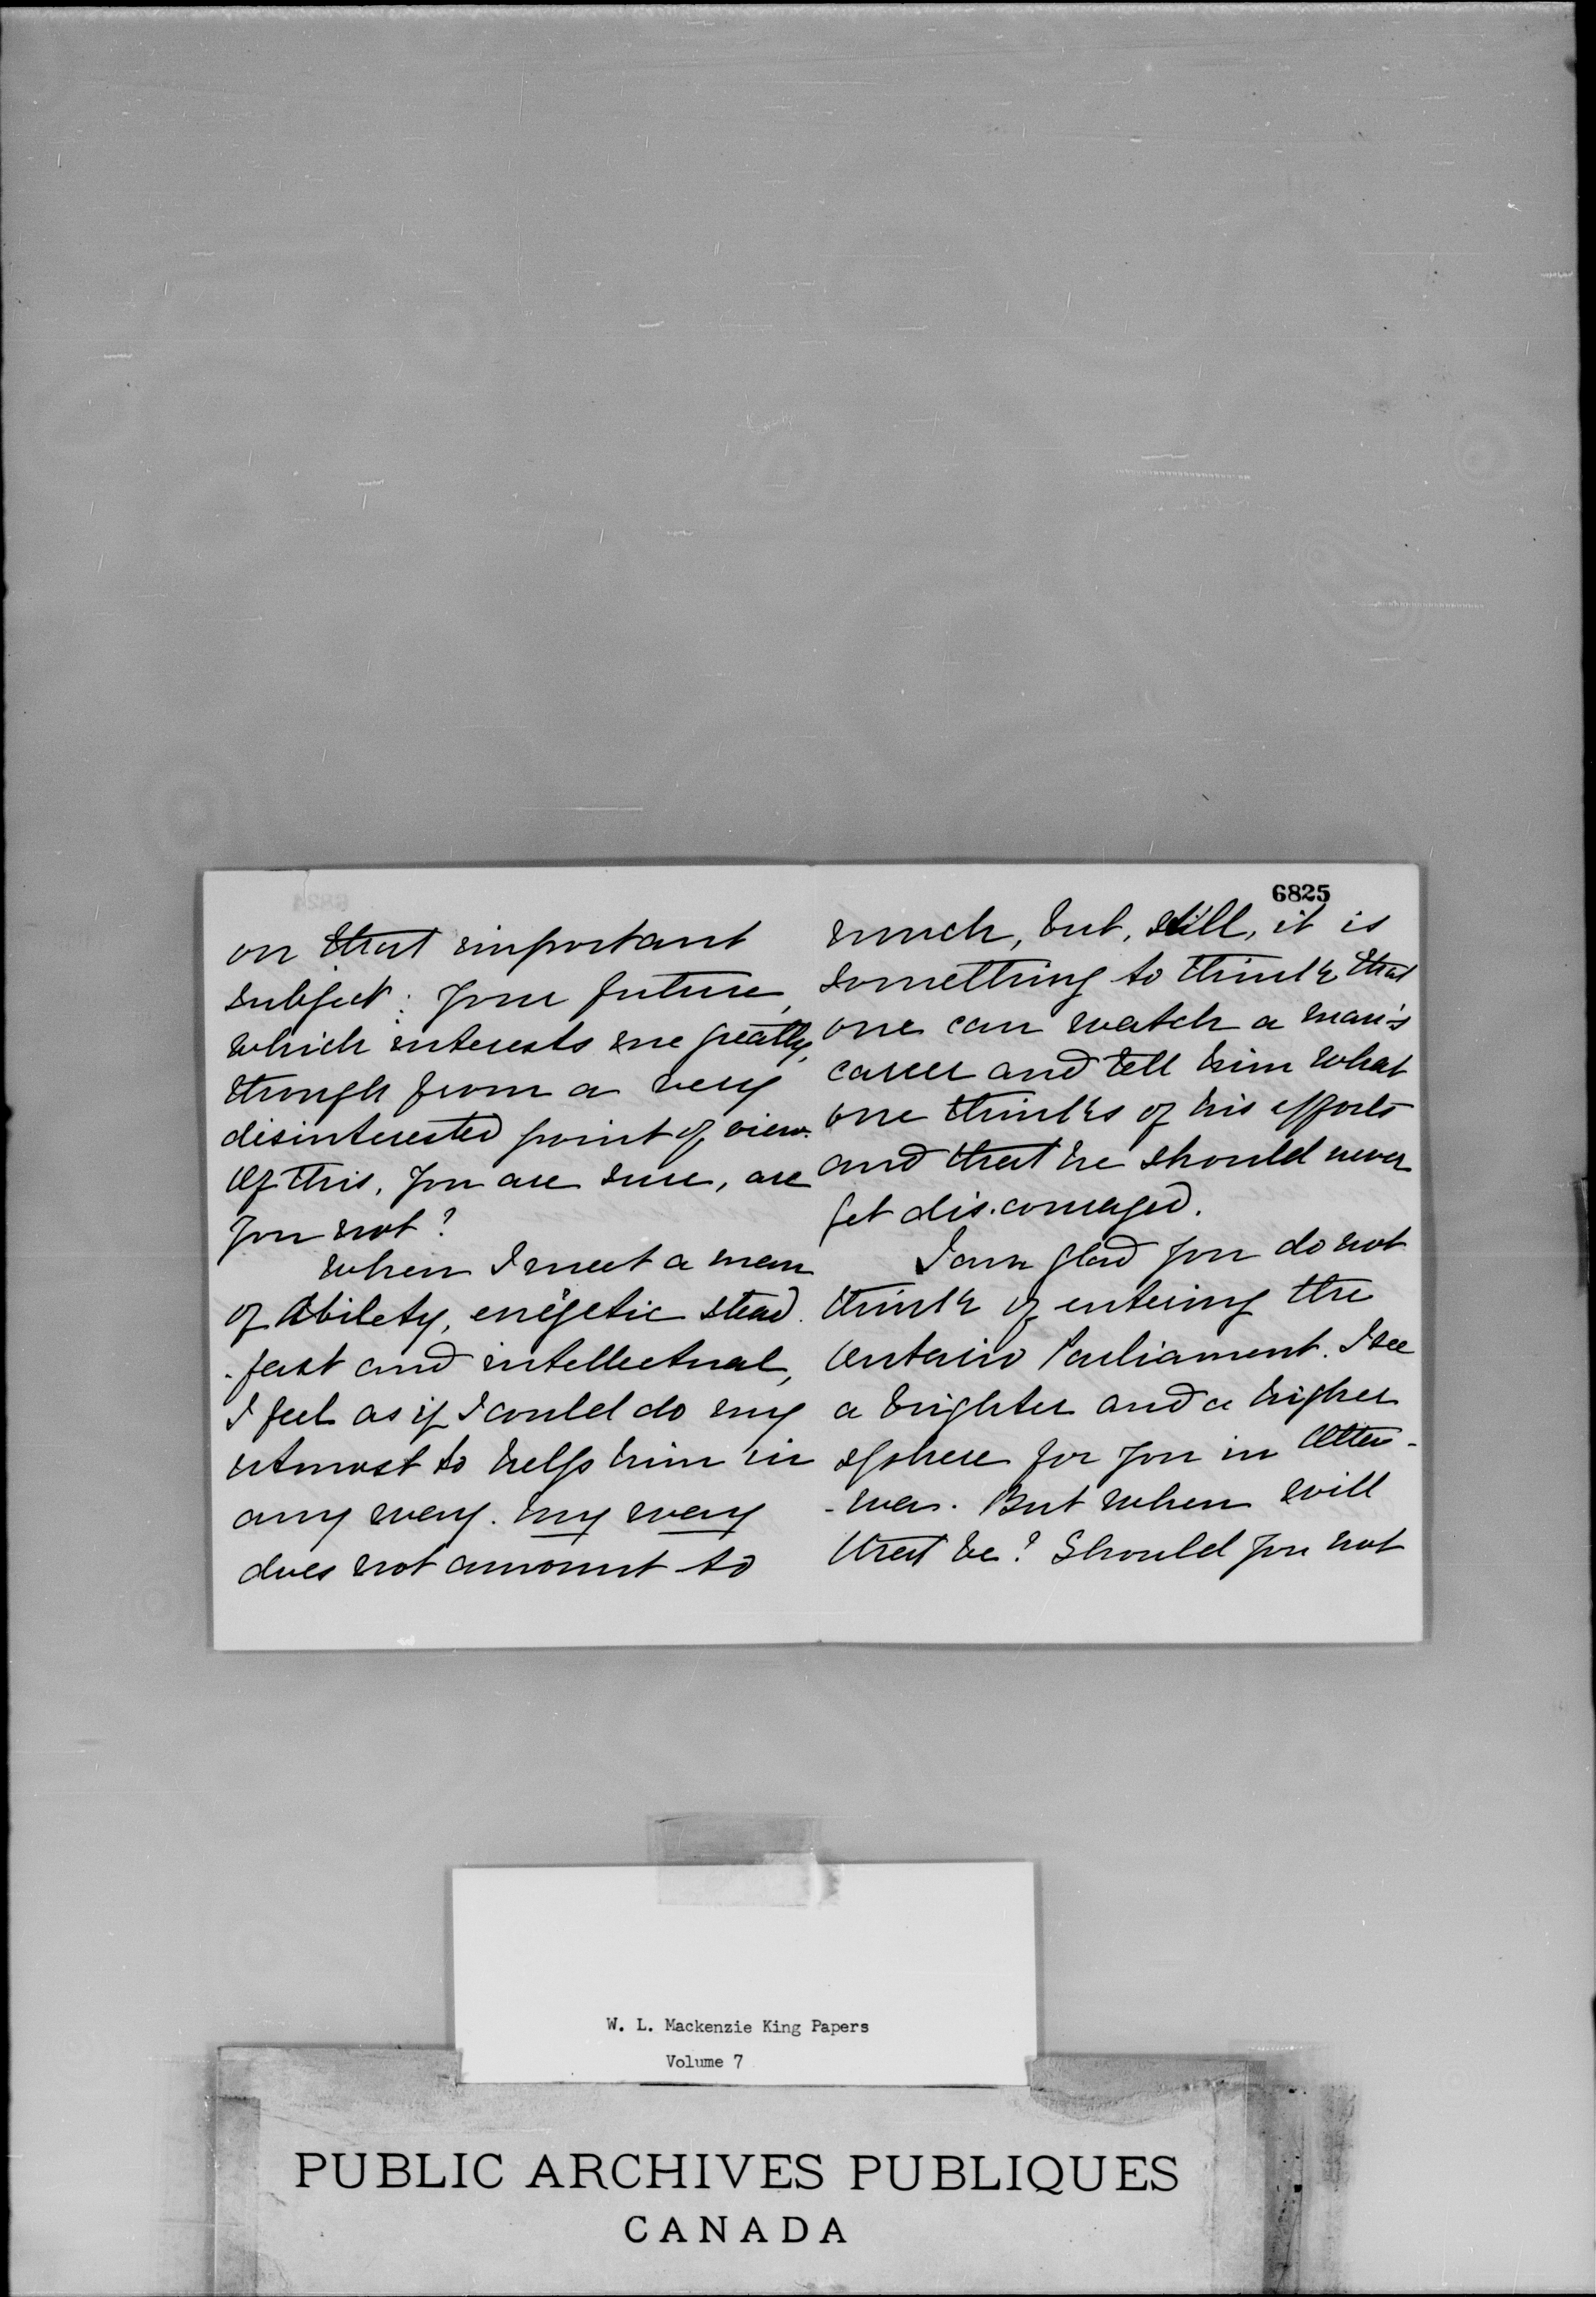 on that important
subject: your future,
which interests me greatly,
though from a very
disinterested point of view.
Of this, you are sure, are
you not?
When I meet a man
of ability, enegetic stead
-fast and intellectual,
I feel as if I could do my
utmost to help him in
any way. My way
does not amount to
6825
much, but, still, it is
something to think that
one can watch a man's
career and tell him what
one thinks of his efforts
and that he should never
get dis.couraged.
I am glad you do not
think of entering the
Ontario Parliament. I see
a brighter and a higher
sphere for you in Otta-
-wa. But when will
that be? Should you not
W. L. Mackenzie King Papers
Volume 7
PUBLIC ARCHIVES PUBLIQUES
CANADA